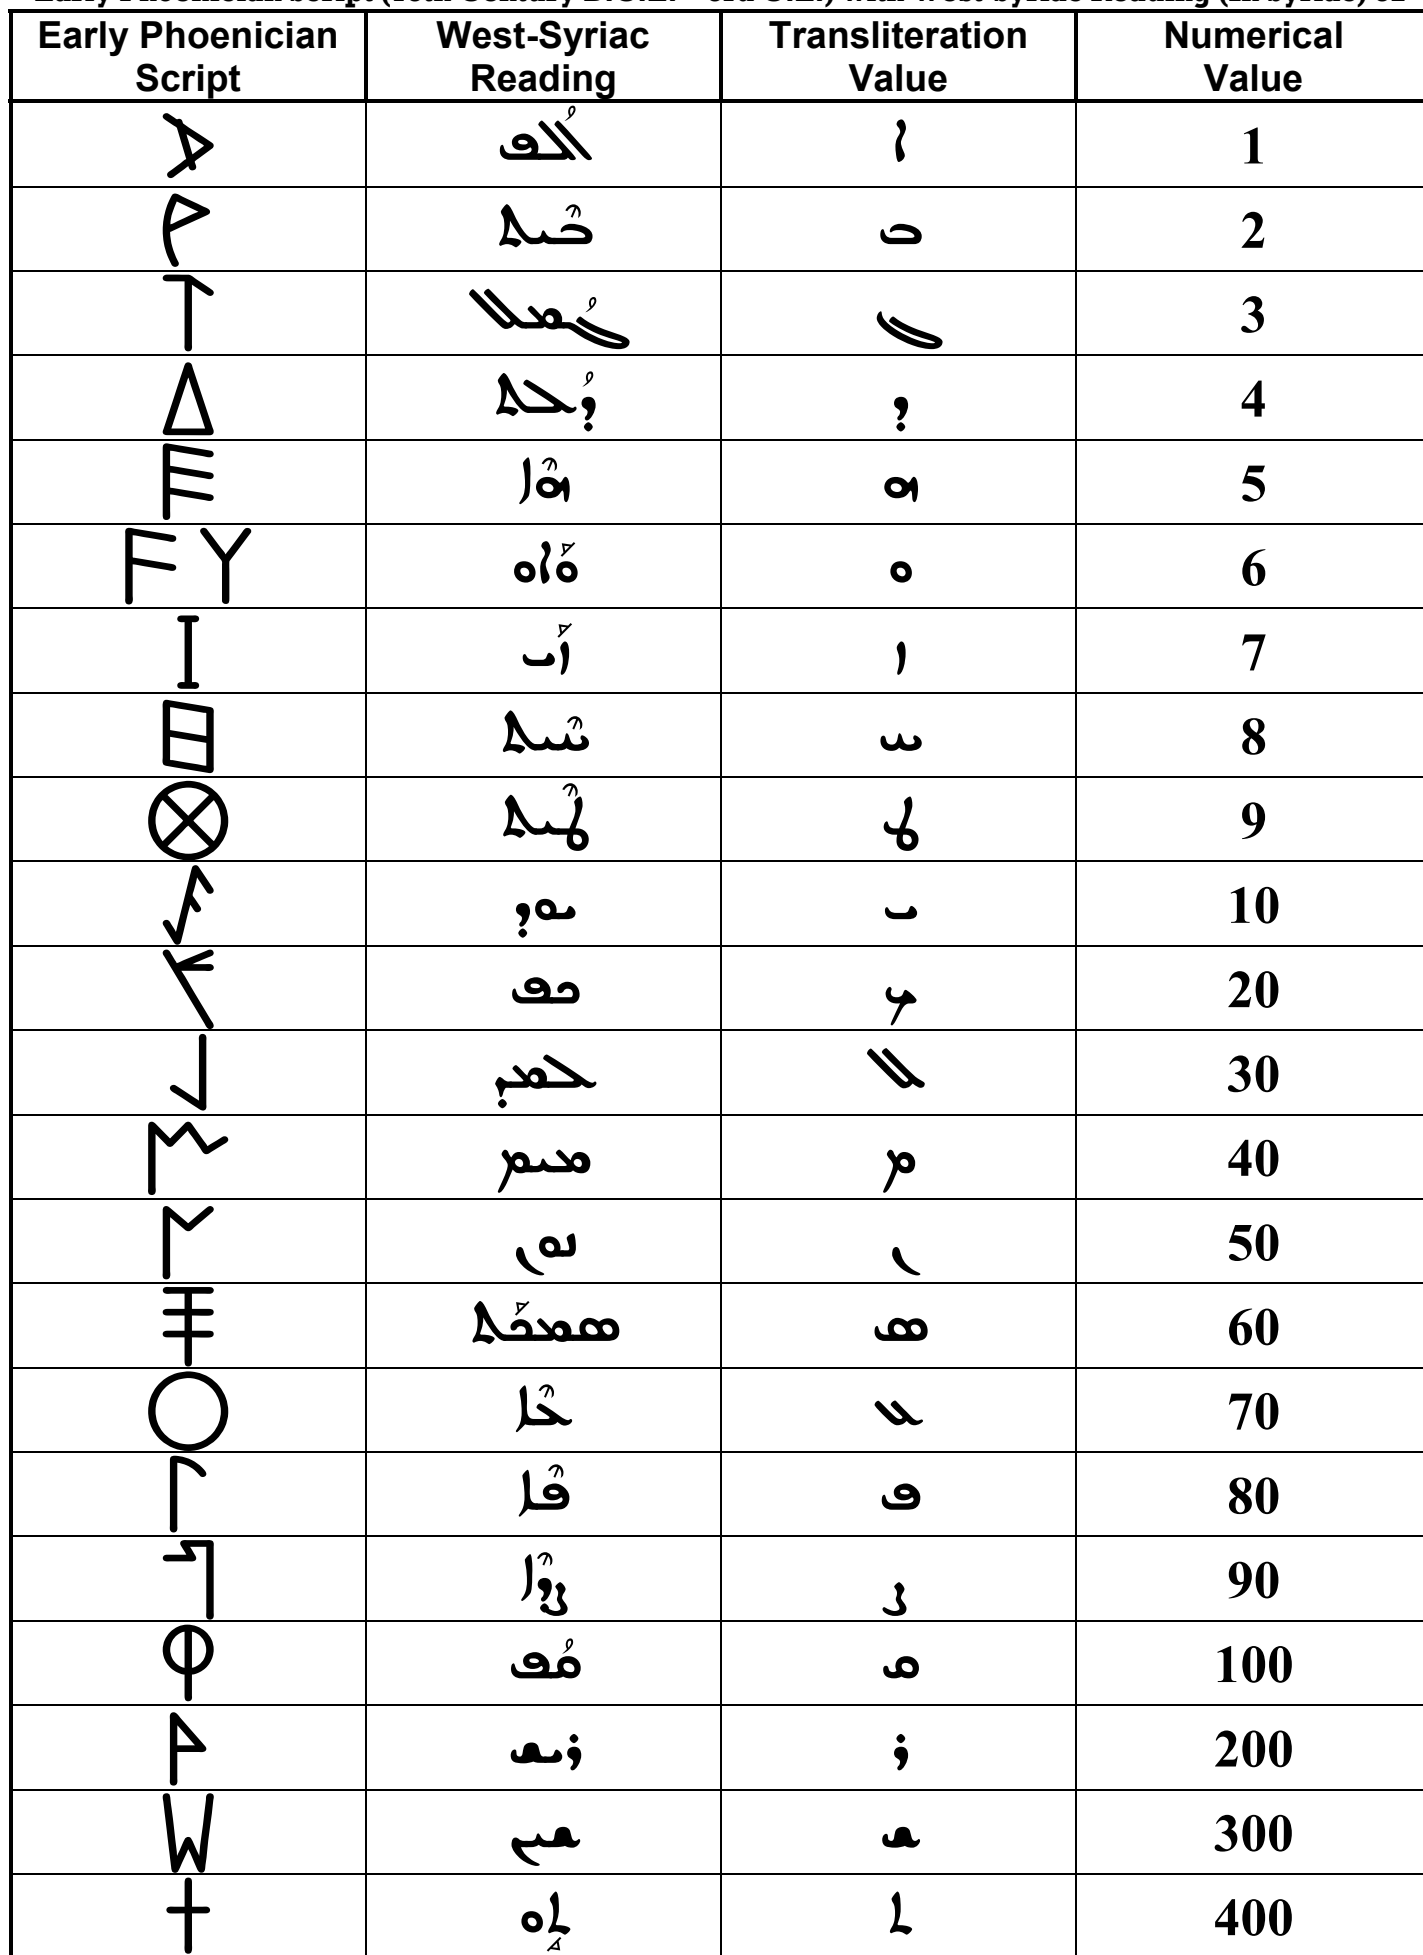 Early Phoenician Script West-Syriac Reading Transliteration Value Numerical Value
𐤀 ܐܳܠܦ ܐ 1
𐤁 ܒܶܝܬ ܒ 2
𐤂 ܓܳܡܠ ܓ 3
𐤃 ܕܳܠܬ ܕ 4
𐤄 ܗܶܐ ܗ 5
𐤅 𐤅 ܘܰܐܘ ܘ 6
𐤆 ܙܰܝ ܙ 7
𐤇 ܚܶܝܬ ܚ 8
𐤈 ܛܶܝܬ ܛ 9
𐤉 ܝܘܕ ܝ 10
𐤊 ܟܦ ܟ 20
𐤋 ܠܡܕ ܠ 30
𐤌 ܡܝܡ ܡ 40
𐤍 ܢܘܢ ܢ 50
𐤎 ܣܡܟܰܬ ܣ 60
𐤏 ܥܶܐ ܥ 70
𐤐 ܦܶܐ ܦ 80
𐤑 ܨܕܶܐ ܨ 90
𐤒 ܩܳܦ ܩ 100
𐤓 ܪܝܫ ܪ 200
𐤔 ܫܝܢ ܫ 300
𐤕 ܬܱܘ ܬ 400